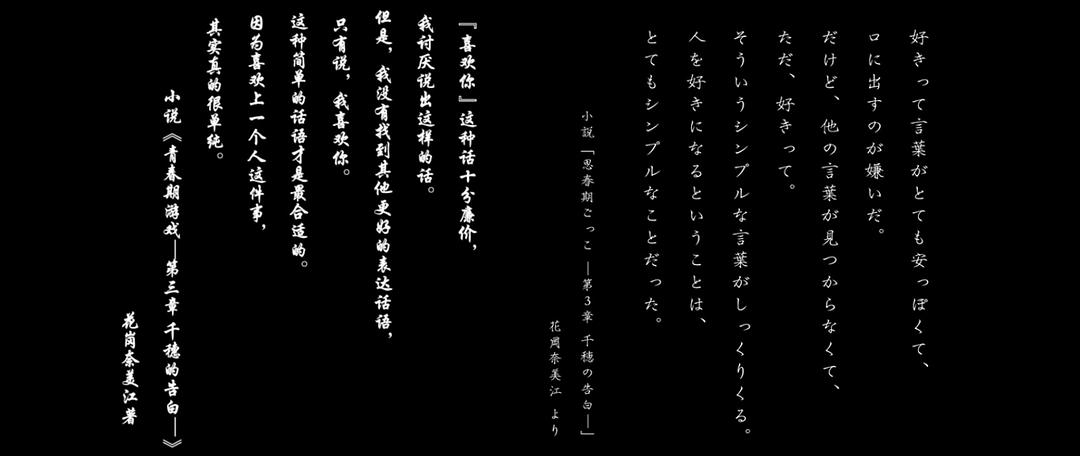 好きって言葉がとても安っぽくて、
口に出すのが嫌いだ。
だけど、他の言葉が見つからなくて、
ただ、好きって。
そういうシンプルな言葉がしっくりくる。
人を好きになるということは、
とてもシンプルなことだった。
小説「思春期ごっこ ―第3章 千穂の告白―」
花岡奈美江 より
『喜欢你』这种话十分廉价，
我讨厌说出这样的话。
但是，我没有找到其他更好的表达话语，
只有说，我喜欢你。
这种简单的话语才是最合适的。
因为喜欢上一个人这件事，
其实真的很单纯。
小说《青春期游戏—第三章 千穗的告白—》
花岗奈美江著